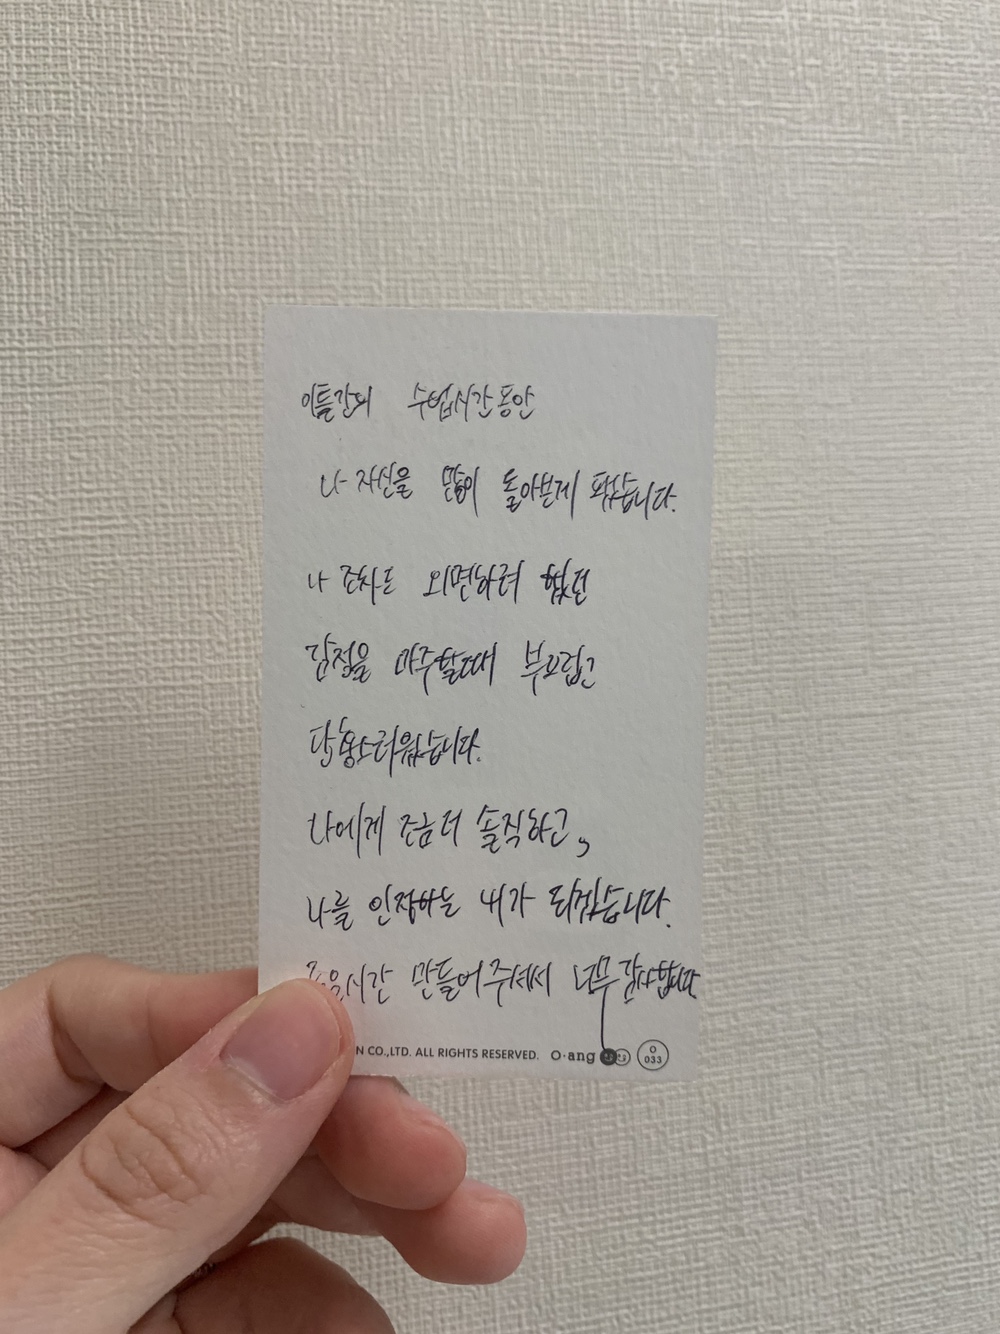 이틀간의 수업시간동안
나 자신을 많이 돌아본게 됐습니다.
나 조차도 외면하려 했던
감정을 마주할때 부끄럽고
당황스러웠습니다.
나에게 조금 더 솔직하고,
나를 인정하는 내가 되겠습니다.
시간 만들어주셔서 너무 감사합니다
N CO.,LTD. ALL RIGHTS RESERVED. O·ang O 033